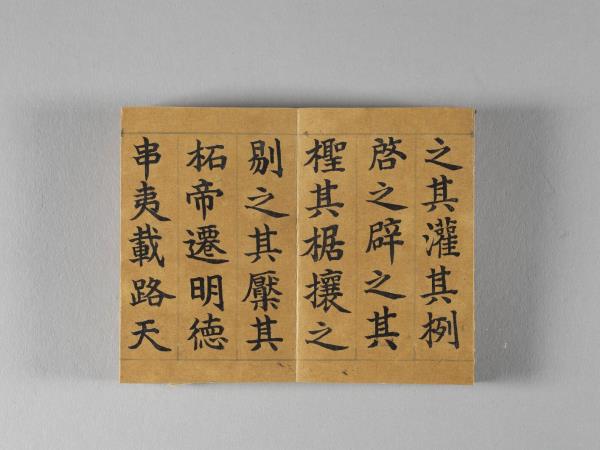 之其灌其栵
啓之辟之其
檉其椐攘之
剔之其檿其
柘帝遷明德
串夷載路天